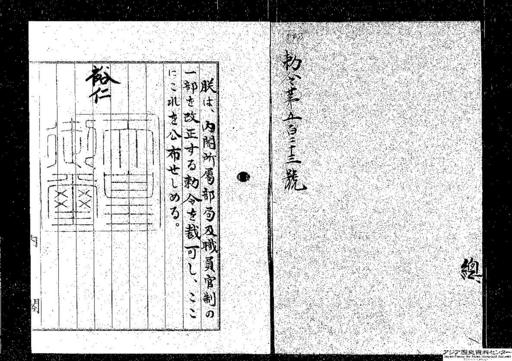 勅令第五百三十三號
總
朕は、内閣所属部局及職員官制の
一部を改正する勅令を裁可し、ここ
にこれを公布せしめる。
裕仁
天皇
御璽
内閣
アジア歴史資料センター